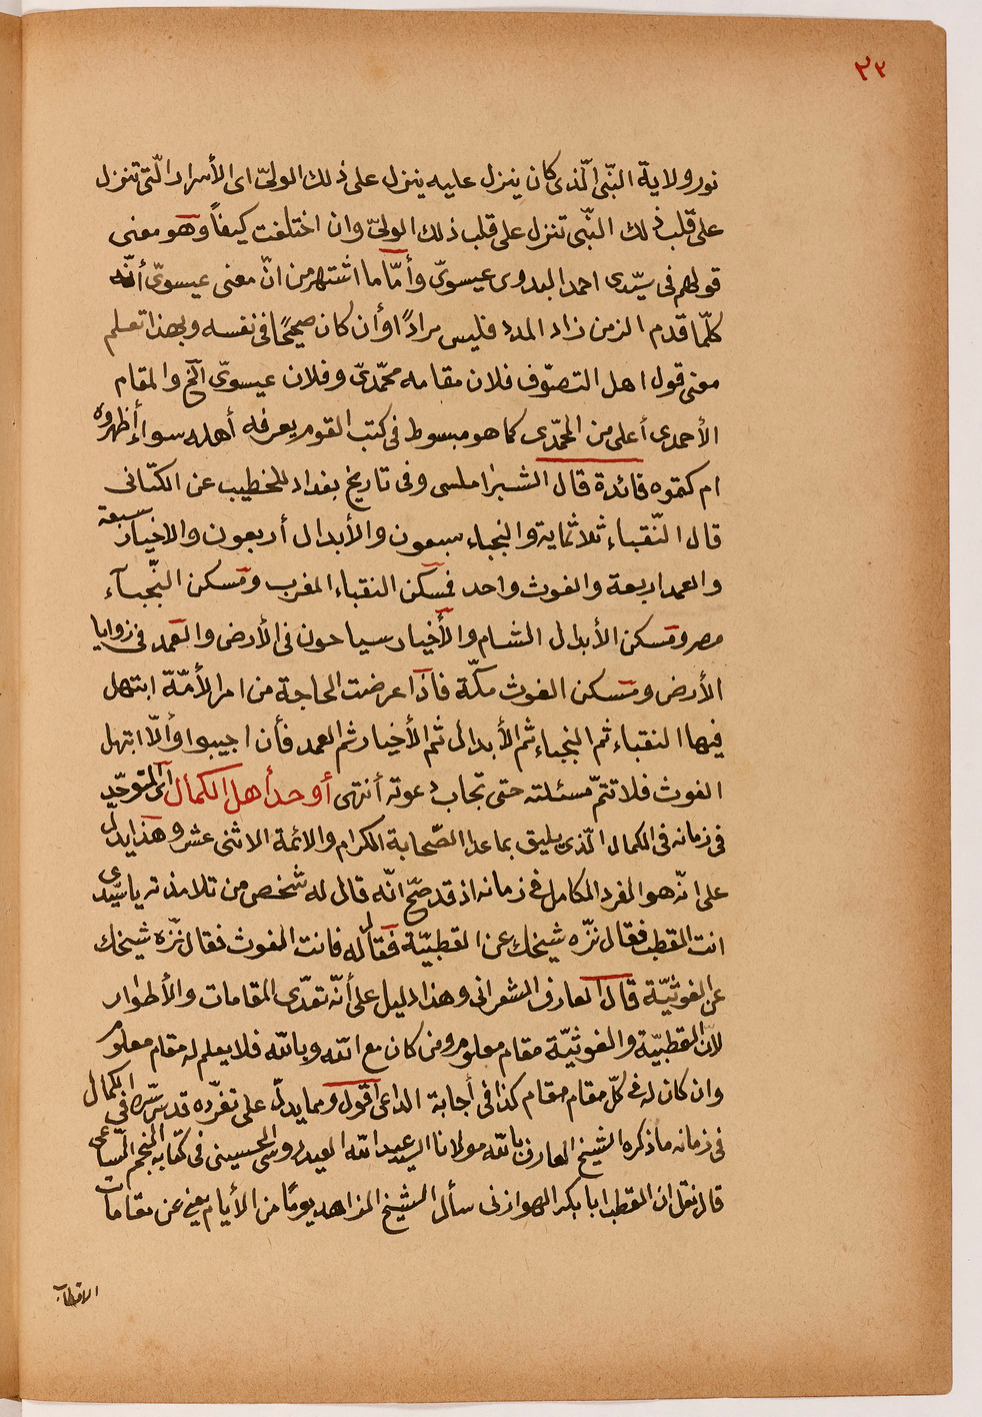 ٢٣
نور ولاية النّبى الّذى كان ينزل عليه ينزل على ذلك الولىّ اى الأسرار الّتى تنزل
على قلب ذلك النّبى تنزل على قلب ذلك الولىّ وان اختلفت كيفاً وهو معنى
قولهم فى سيّدى احمد البدوى عيسوىّ وأمّا ما اشتهر من انّ معنى عيسوىّ أنّه
كلّما قدم الزمن زاد المدد فليس مرادًا وأن كان صحيحًا فى نفسه وبهذا تعلم
معنى قول اهل التصوّف فلان مقامه محمّدىّ وفلان عيسوىّ الخ والمقام
الأحمدى أعلى من المحمّدى كما هو مبسوط فى كتب القوم يعرفه أهله سواء أظهروه
ام كتموه فائدة قال الشبراملسى وفى تاريخ بغداد للخطيب عن الكتّانى
قال النّقباء ثلاثماية والنجباء سبعون والأبدال أربعون والاخيار سبعة
والعمد اربعة والغوث واحد فمسكن النقباء المغرب ومسكن النّجبآء
مصر ومسكن الأبدال الشام والأخيار سياحون فى الأرض والعمد فى زوايا
الأرض ومسكن الغوث مكّة فاذا عرضت الحاجة من امر الأمّة ابتهل
فيها النقباء ثم النجباء ثم الأبدال ثم الأخيار ثم العمد فأن اجيبوا وألّا ابتهل
الغوث فلا تتمّ مسئلته حتى تجاب دعوته أنتهى أوحد أهل الكمال اى المتوحّد
فى زمانه فى الكمال الّذى يليق بما عدا الصّحابة الكرام والائمة الاثنى عشر وهذا يدلّ
على انّه هو الفرد الكامل فى زمانه اذ قد صحّ انّه قال له شخص من تلامذته يا سيّدى
انت القطب فقال نزّه شيخك عن القطبيّة فقال له فانت الغوث فقال نزّه شيخك
عن الغوثيّة قال العارف الشعرانى وهذا دليل على أنّه تعدّى المقامات والأطوار
لأنّ القطبيّة والغوثيّة مقام معلوم ومن كان مع الله وبالله فلا يعلم له مقام معلوم
وان كان له فى كلّ مقام مقام كذا فى أجابة الداعى اقول ومما يدلّ على تفرّده قدس سرّه فى الكمال
فى زمانه ما ذكره الشيخ العارف بالله مولانا السيد عبد الله العيدروسى الحسينى فى كتابه النجم السّاعى
قال نقل ان القطب ابا بكر الهوازنى سأل الشيخ الزاهد يومًا من الأيام يعنى عن مقامات
الاقطاب